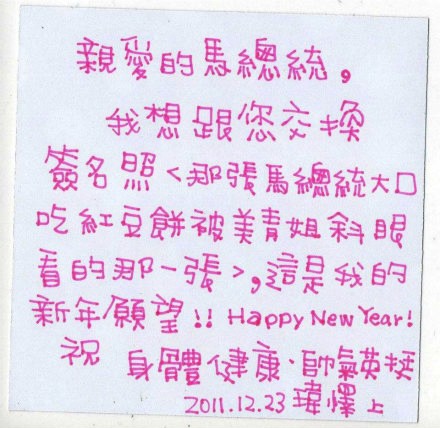 親愛的馬總統,
我想跟您交換
簽名照<那張馬總統大口
吃紅豆餅被美青姐斜眼
看的那一張>,這是我的
新年願望!! Happy New Year!
祝 身體健康、帥氣英挺
2011.12.23 瑋懌上